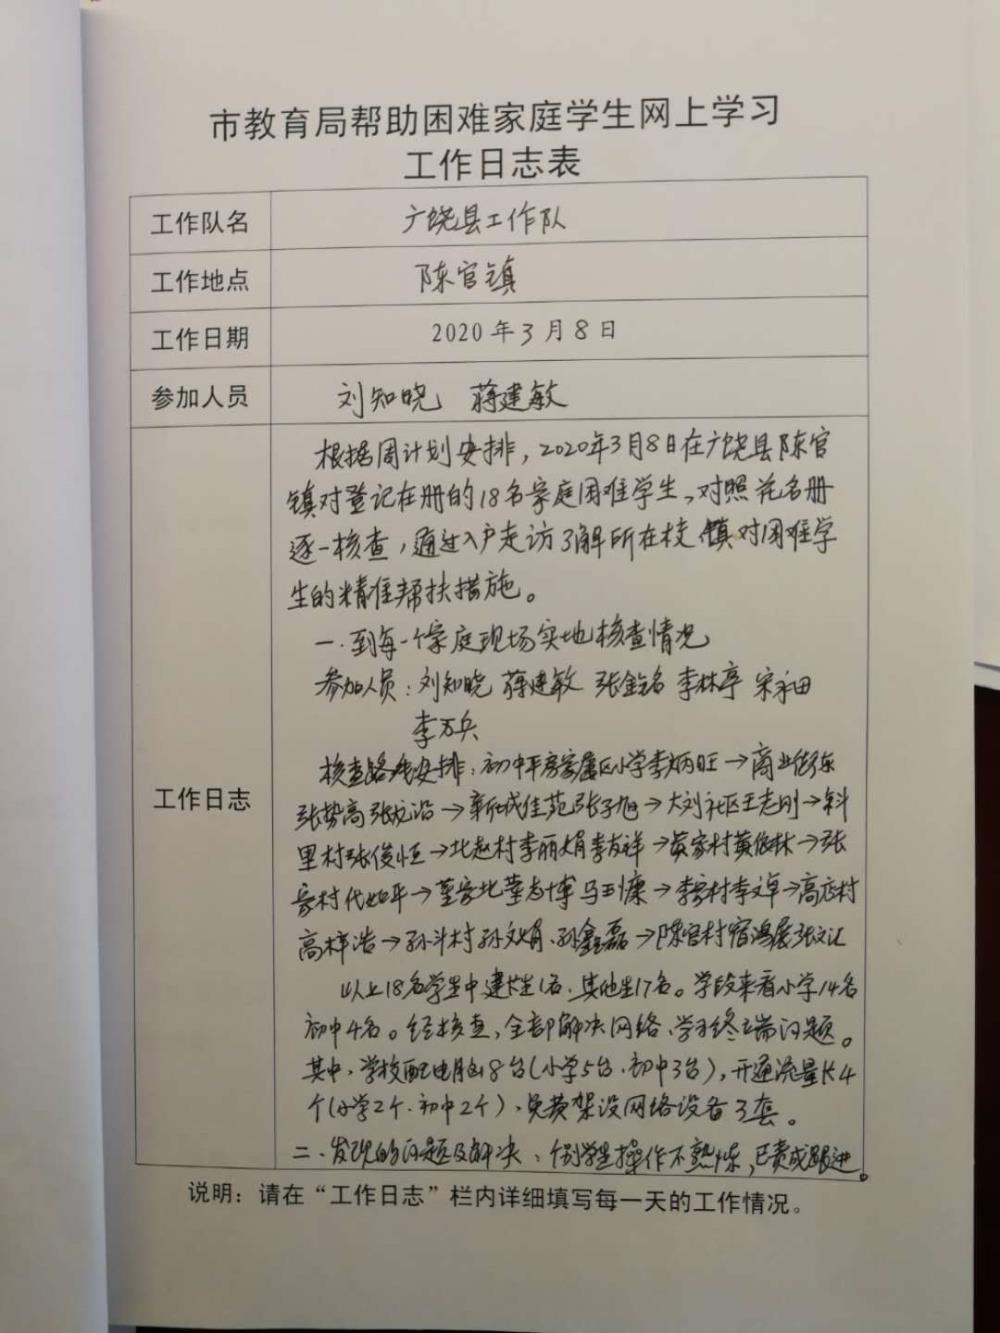 市教育局帮助困难家庭学生网上学习
工作日志表
工作队名 广饶县工作队
工作地点 陈官镇
工作日期 2020年3月8日
参加人员 刘知晓 蒋建敏
工作日志
根据周计划安排，2020年3月8日在广饶县陈官
镇对登记在册的18名家庭困难学生，对照花名册
逐一核查，通过入户走访了解所在校、镇对困难学
生的精准帮扶措施。
一.到每一个家庭现场实地核查情况
参加人员：刘知晓 蒋建敏 张金铭 李林亭 宋永田
李万兵
核查路线安排：初中平房家属区小学李炳旺→商业街东
张势高张龙滔→新城佳苑张子旭→大刘社区王志刚→斜
里村张俊恒→北赵村李丽娟李友祥→黄家村黄俊林→张
家村代如年→董家北董志博马玉慷→李家村李文卓→高店村
高梓浩→孙斗村孙文娟、孙鑫磊→陈官村宿鸿展张文汇
以上18名学生中建档生1名，其他生17名。学段来看小学14名
初中4名。经核查，全部解决网络、学习终端问题。
其中，学校配电脑8台（小学5台，初中3台），开通流量卡4
个（小学2个，初中2个）、免费架设网络设备3套。
二、发现的问题及解决、个别学生操作不熟炼，已责成跟进。
说明：请在“工作日志”栏内详细填写每一天的工作情况。